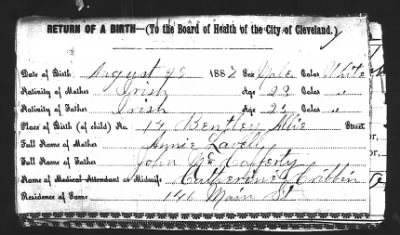 RETURN OF A BIRTH—(To the Board of Health of the City of Cleveland.)
Date of Birth August 23 1882 Sex Male Color White
Nativity of Mother Irish Age 28 Color "
Nativity of Father Irish Age 25 Color "
Place of Birth (of child) No. 14 Bentley Allie Street
Full Name of Mother Annie Lavelle
Full Name of Father John McCafferty
Name of Medical Attendant or Midwife Catherine Cribbin
Residence of Same 146 Main St